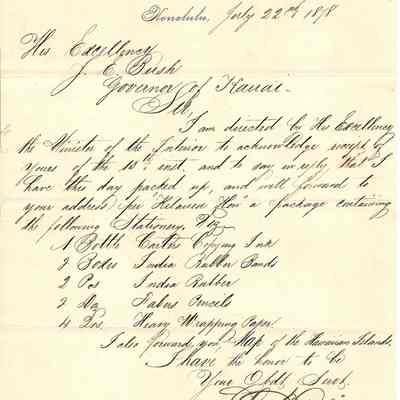 Honolulu, July 22nd 1878
His Excellency
J. E. Bush
Governor of Kauai.
Sir,
I am directed by His Excellency
the Minister of the Interior to acknowledge receipt of
yours of the 15th inst. and to say in reply that I
have this day packed up, and will forward to
your address per "Kilauea Hou" a package containing
the following Stationery, Viz
1 Bottle Carters Copying Ink
2 Boxes India Rubber Bands
2 Pcs India Rubber
2 Dz Fabers Pencils
4 Qrs. Heavy Wrapping Paper
I also forward you, Map of the Hawaiian Islands.
I have the honor to be
Your Obdt. Servt.